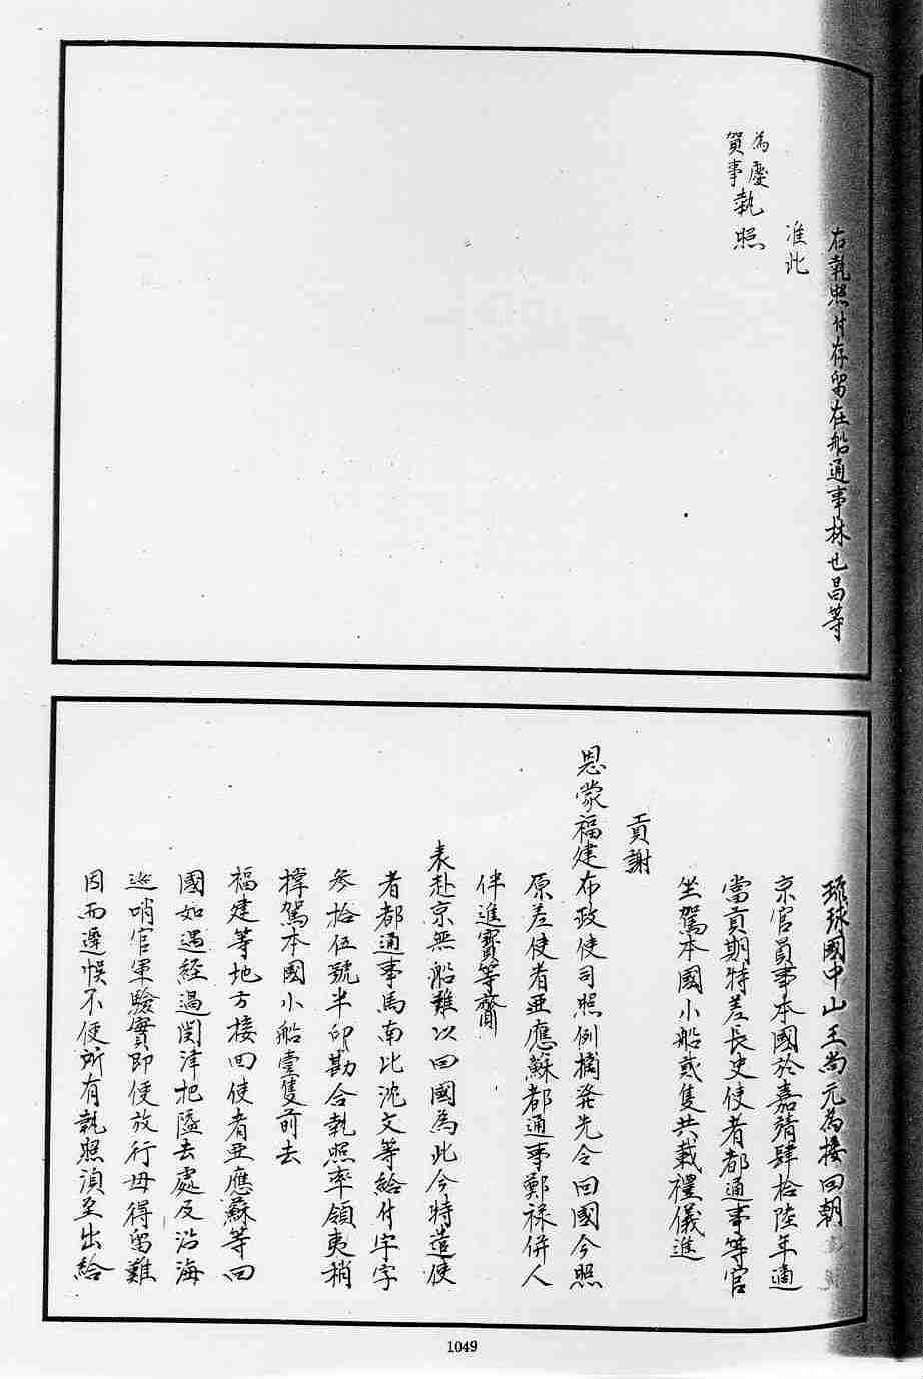 右執照付存留在船通事林世昌等
准此
為慶
賀事執照
琉球國中山王尚元為接回朝
京官員事本國於嘉靖肆拾陸年適
當貢期特差長史使者都通事等官
坐駕本國小船貳隻共載禮儀進
貢謝
恩蒙福建布政使司照例摘発先令回國今照
原差使者亜應蘇都通事鄭祿併人
伴進寳等齎
表赴京無船難以回國為此今特遣使
者都通事馬南比沈文等給付字字
参拾伍號半印勘合執照率領夷梢
撑駕本國小船壹隻前去
福建等地方接回使者亜應蘇等回
國如遇經過関津把隘去處及沿海
巡哨官軍驗實即便放行毋得留難
因而遲悞不便所有執照湏至出給
1049